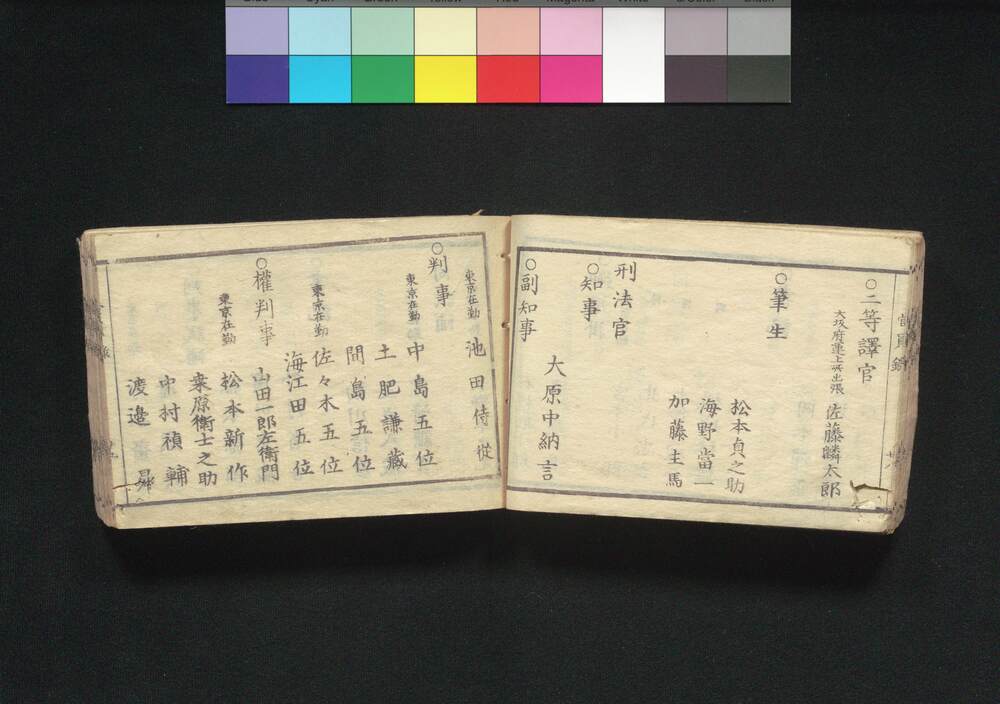 官員錄
○二等譯官
大坂府運上所出張 佐藤麟太郎
○筆生
松本貞之助
海野當一
加藤主馬
刑法官
○知事
大原中納言
○副知事
東京在勤 池田侍從
○判事
東京在勤 中島五位
土肥謙藏
間島五位
東京在勤 佐々木五位
海江田五位
○權判事
山田一郎左衛門
東京在勤 松本新作
桒原衛士之助
中村禎輔
渡邉昇